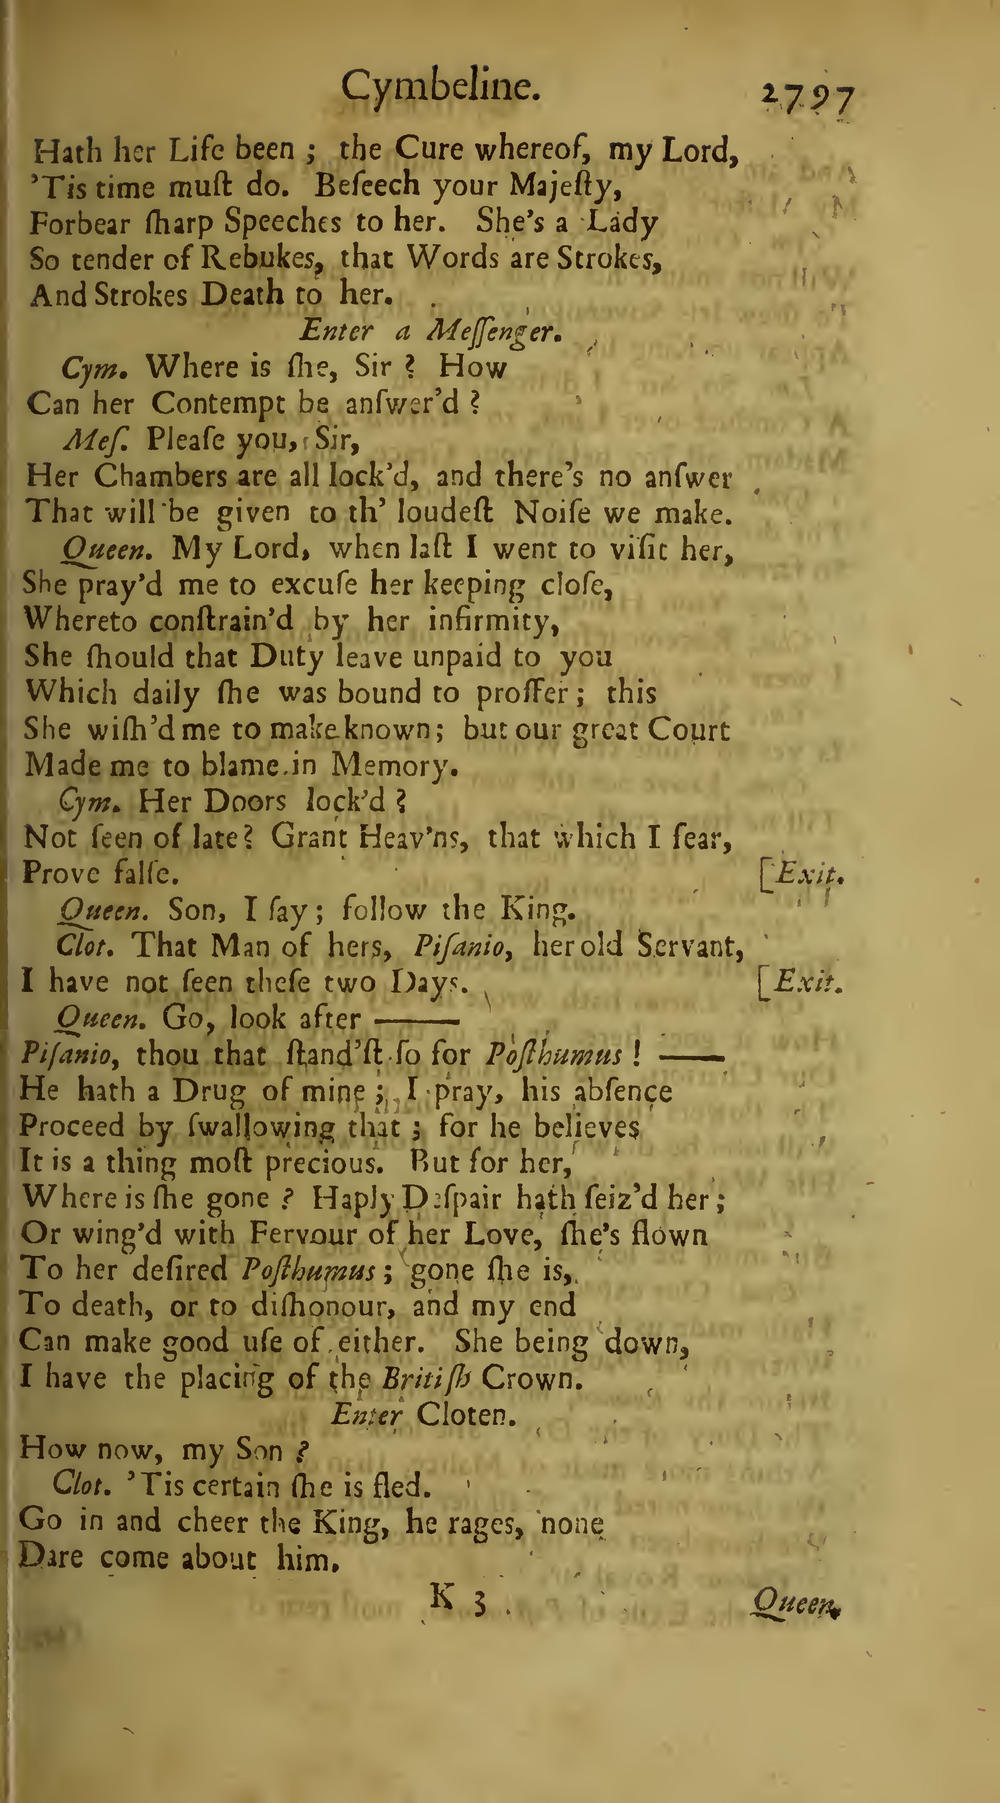 Cymbeline. 2797
Hath her Life been ; the Cure whereof, my Lord,
'Tis time muſt do. Beſeech your Majeſty,
Forbear ſharp Speeches to her. She's a Lady
So tender of Rebukes, that Words are Strokes,
And Strokes Death to her.
Enter a Meſſenger.
Cym. Where is ſhe, Sir ? How
Can her Contempt be anſwer'd ?
Meſ. Pleaſe you, Sir,
Her Chambers are all lock'd, and there's no anſwer
That will be given to th' loudeſt Noiſe we make.
Queen. My Lord, when laſt I went to viſit her,
She pray'd me to excuſe her keeping cloſe,
Whereto conſtrain'd by her infirmity,
She ſhould that Duty leave unpaid to you
Which daily ſhe was bound to proffer ; this
She wiſh'd me to make known ; but our great Court
Made me to blame in Memory.
Cym. Her Doors lock'd ?
Not ſeen of late ? Grant Heav'ns, that which I fear,
Prove falſe. [Exit.
Queen. Son, I ſay ; follow the King.
Clot. That Man of hers, Piſanio, her old Servant,
I have not ſeen theſe two Days. [Exit.
Queen. Go, look after ———
Piſanio, thou that ſtand'ſt ſo for Poſthumus ! ———
He hath a Drug of mine ; I pray, his abſence
Proceed by ſwallowing that ; for he believes
It is a thing moſt precious. But for her,
Where is ſhe gone ? Haply Deſpair hath ſeiz'd her ;
Or wing'd with Fervour of her Love, ſhe's flown
To her deſired Poſthumus ; gone ſhe is,
To death, or to diſhonour, and my end
Can make good uſe of either. She being down,
I have the placing of the Britiſh Crown.
Enter Cloten.
How now, my Son ?
Clot. 'Tis certain ſhe is fled.
Go in and cheer the King, he rages, none
Dare come about him.
K 3 Queen.